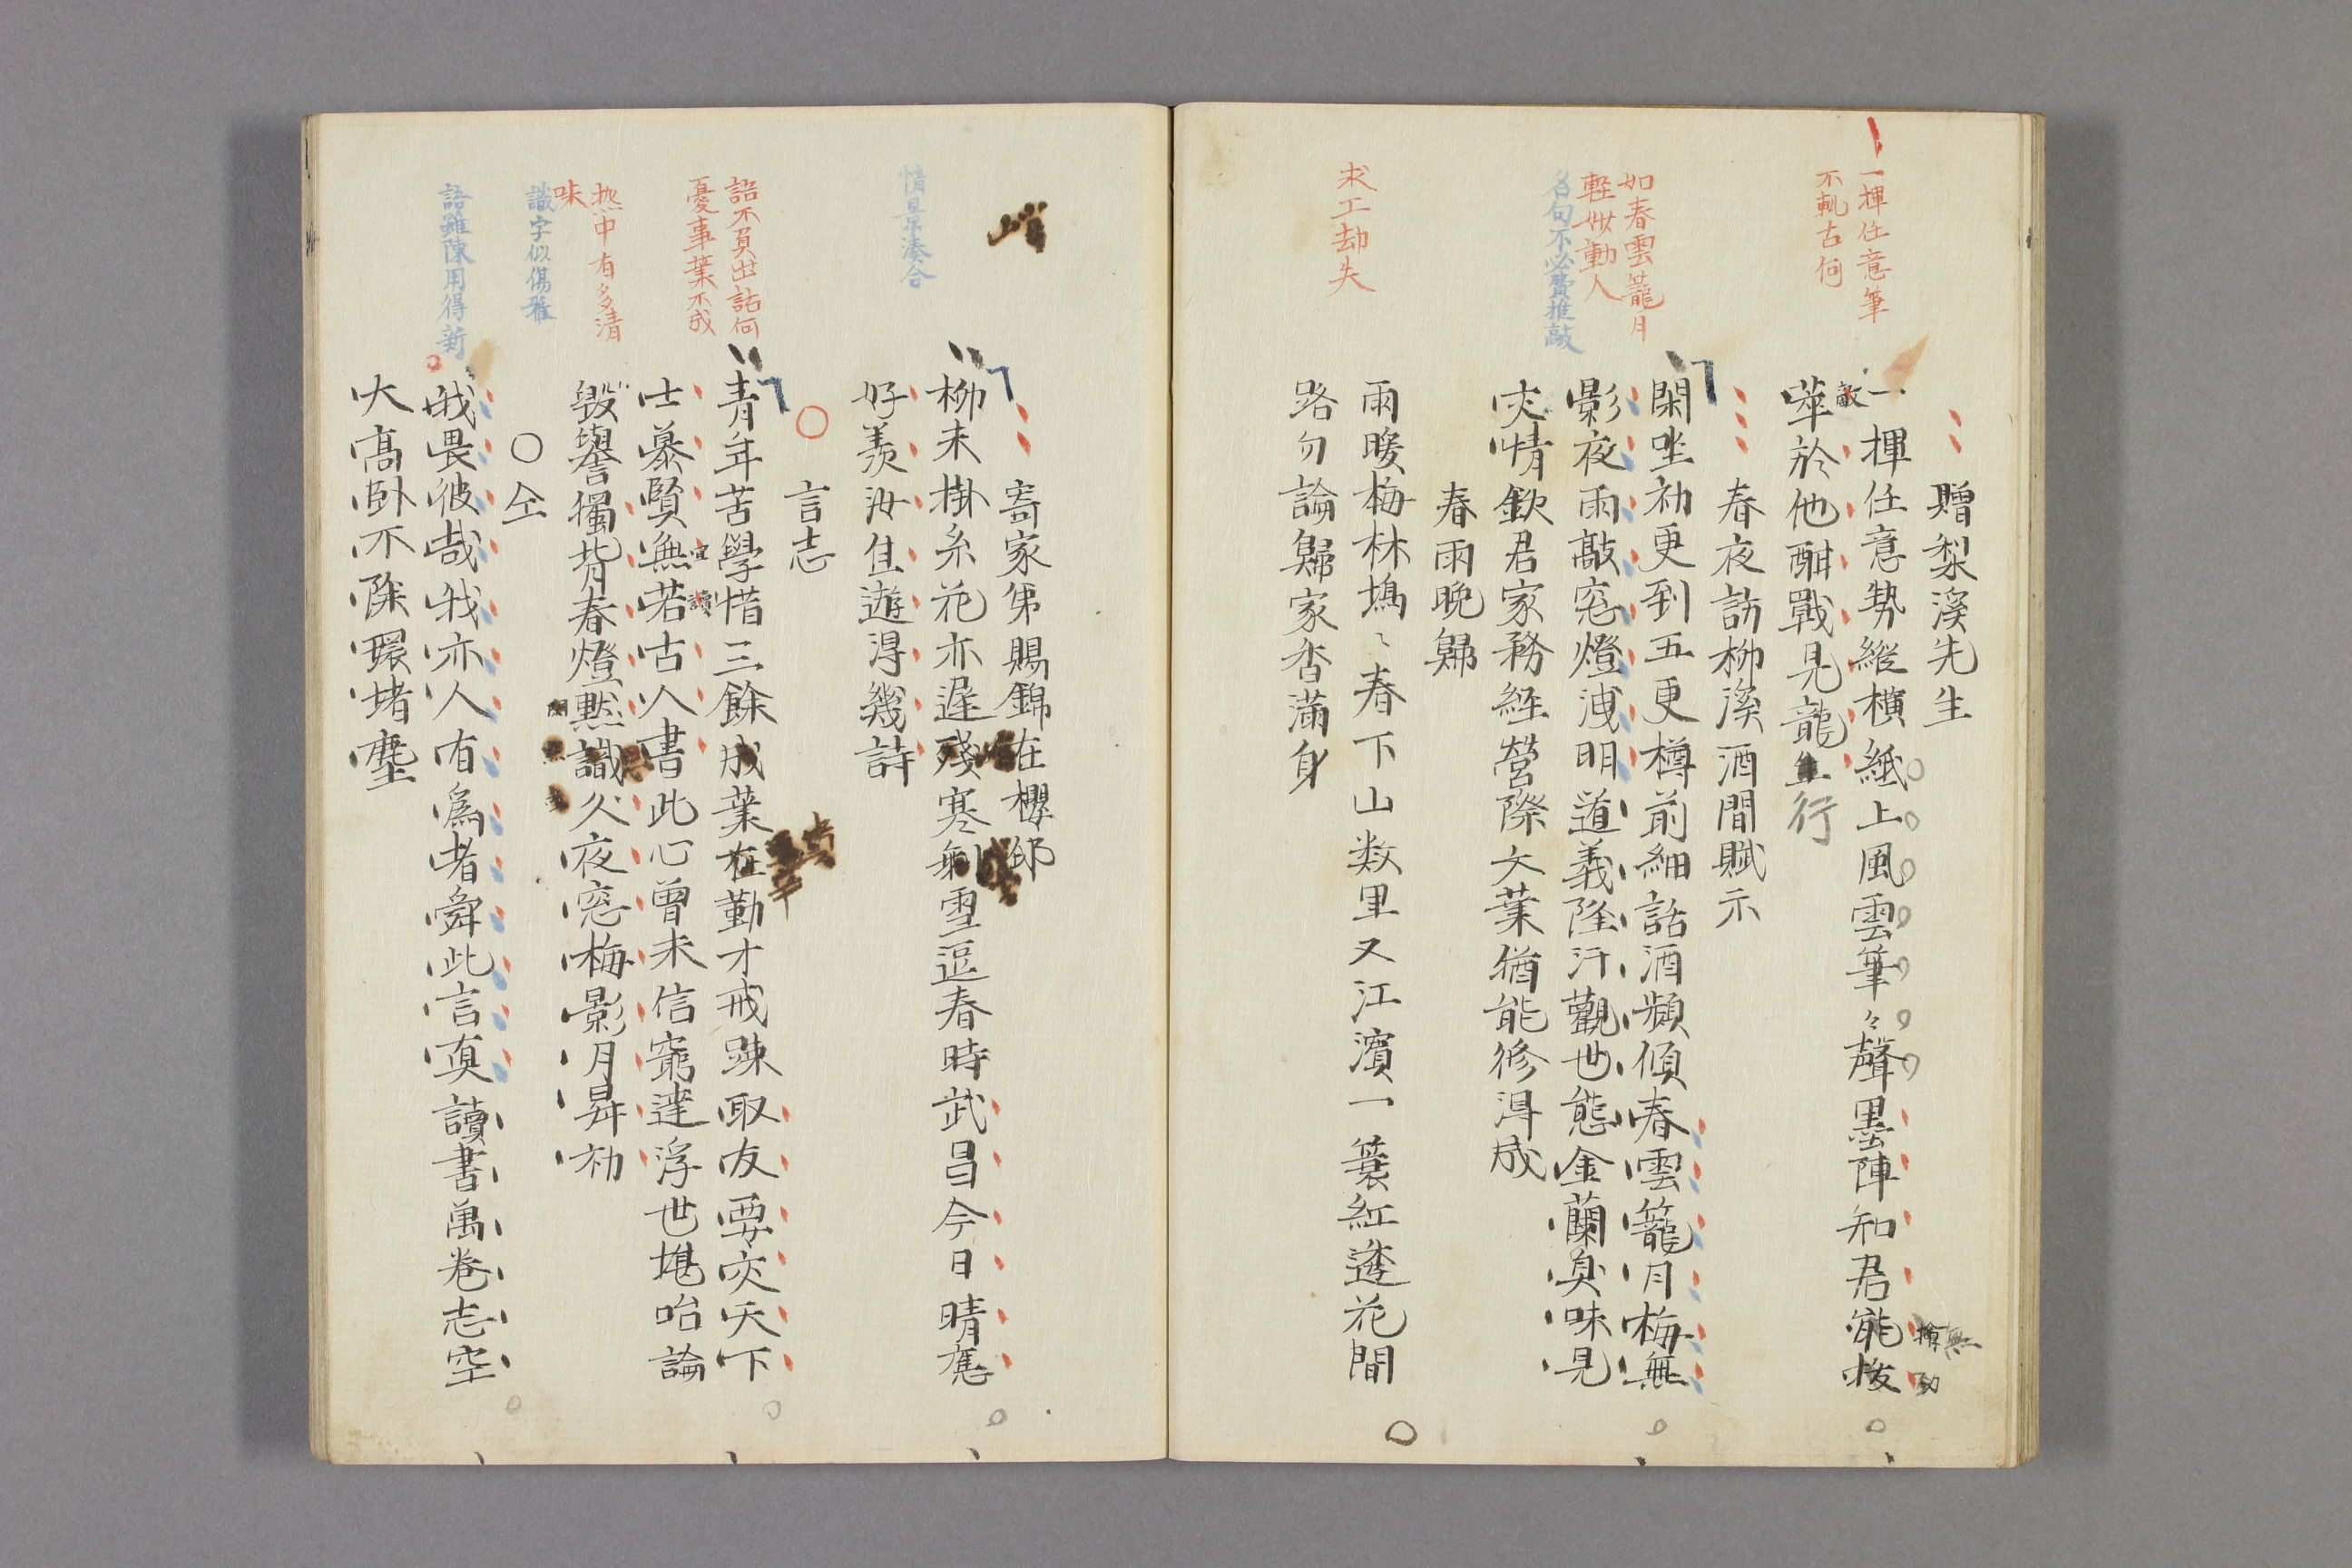 一揮任意筆
不軌古何
贈梨溪先生
一揮任意勢縱横紙上風雲筆々聲墨陣知君能拔
萃於他酣戰見龍行
敵
如春雲籠月
輕妙動人
名句不必費推敲
春夜訪柳溪酒間賦示
閑坐初更到五更樽前細話酒頻傾春雲籠月梅無
影夜雨敲窓燈洩明道義隆汙觀世態金蘭臭味見
交情欽君家務經營際大業猶能修得成
春雨晩歸
求工却失
雨暖梅林塢〻春下山数里又江濱一簑紅透花間
路勿論歸家香滿身
寄家弟賜錦在櫻邸
情景湊合
柳未掛糸花亦遲殘寒剰雪逗春時武昌今日晴應
好羨汝佳遊得幾詩
言志
語不負出話何
憂事業不成
青年苦學惜三餘成業在勤才戒踈取友要交天下
士慕賢無若古人書此心曾未信窮達浮世堪咍論
宜
讀
热中有多清
味
識字似傷雅
毀譽獨背春燈默識久夜窓梅影月昇初
仝
語雖陳用得新
我畏彼哉我亦人有爲者舜此言真讀書萬卷志空
大高臥不除環堵塵